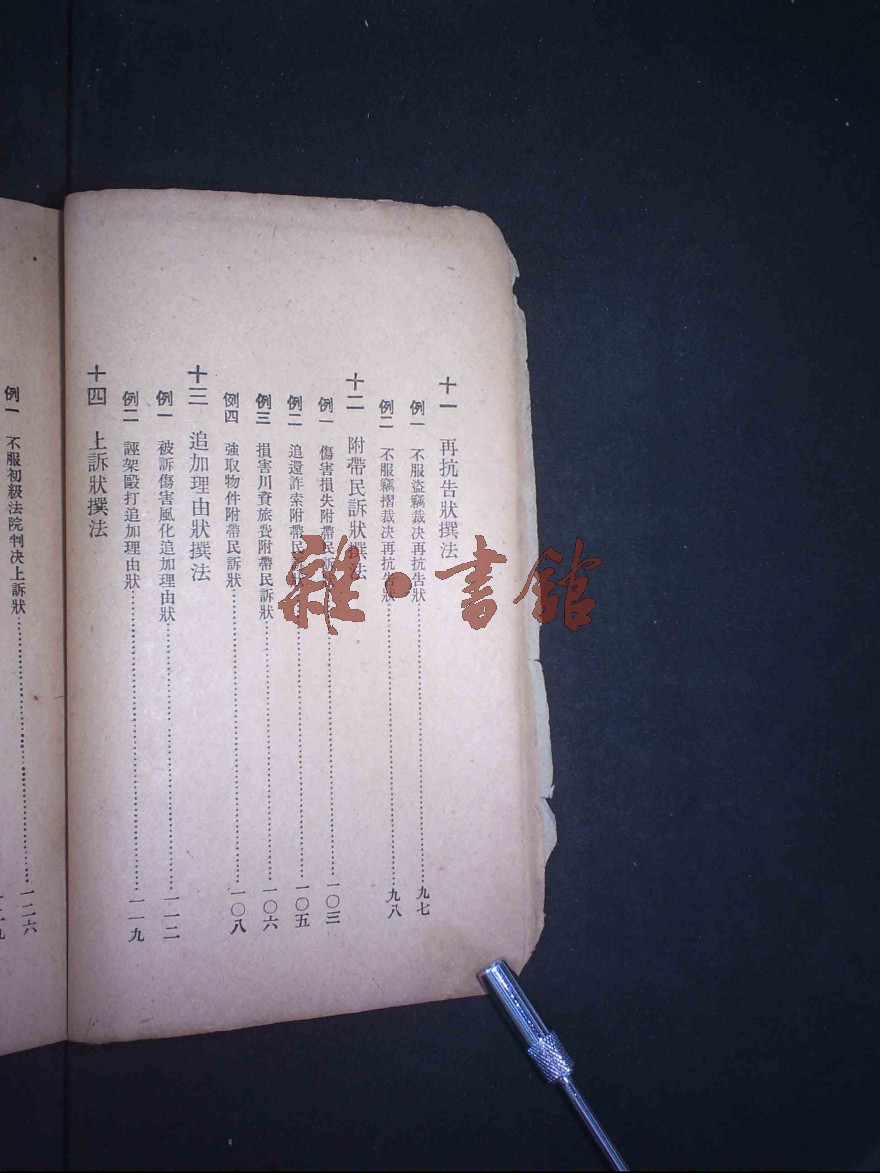 十一 再抗告狀撰法
例一 不服盜竊裁決再抗告狀……九七
例二 不服竊摺裁決再抗告狀……九八
十二 附帶民訴狀撰法
例一 傷害損失附帶民訴狀……一〇三
例二 追還詐索附帶民訴狀……一〇五
例三 損害川資旅費附帶民訴狀……一〇六
例四 強取物件附帶民訴狀……一〇八
十三 追加理由狀撰法
例一 被訴傷害風化追加理由狀……一一二
例二 誣架毆打追加理由狀……一一九
十四 上訴狀撰法
例一 不服初級法院判決上訴狀……一二六
雜·書館